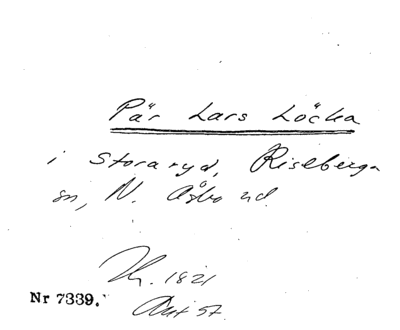 Pär Lars Löcka
i Storaryd, Riseberga
sn, N. Åsbo hd.
1821
Nr 7339.